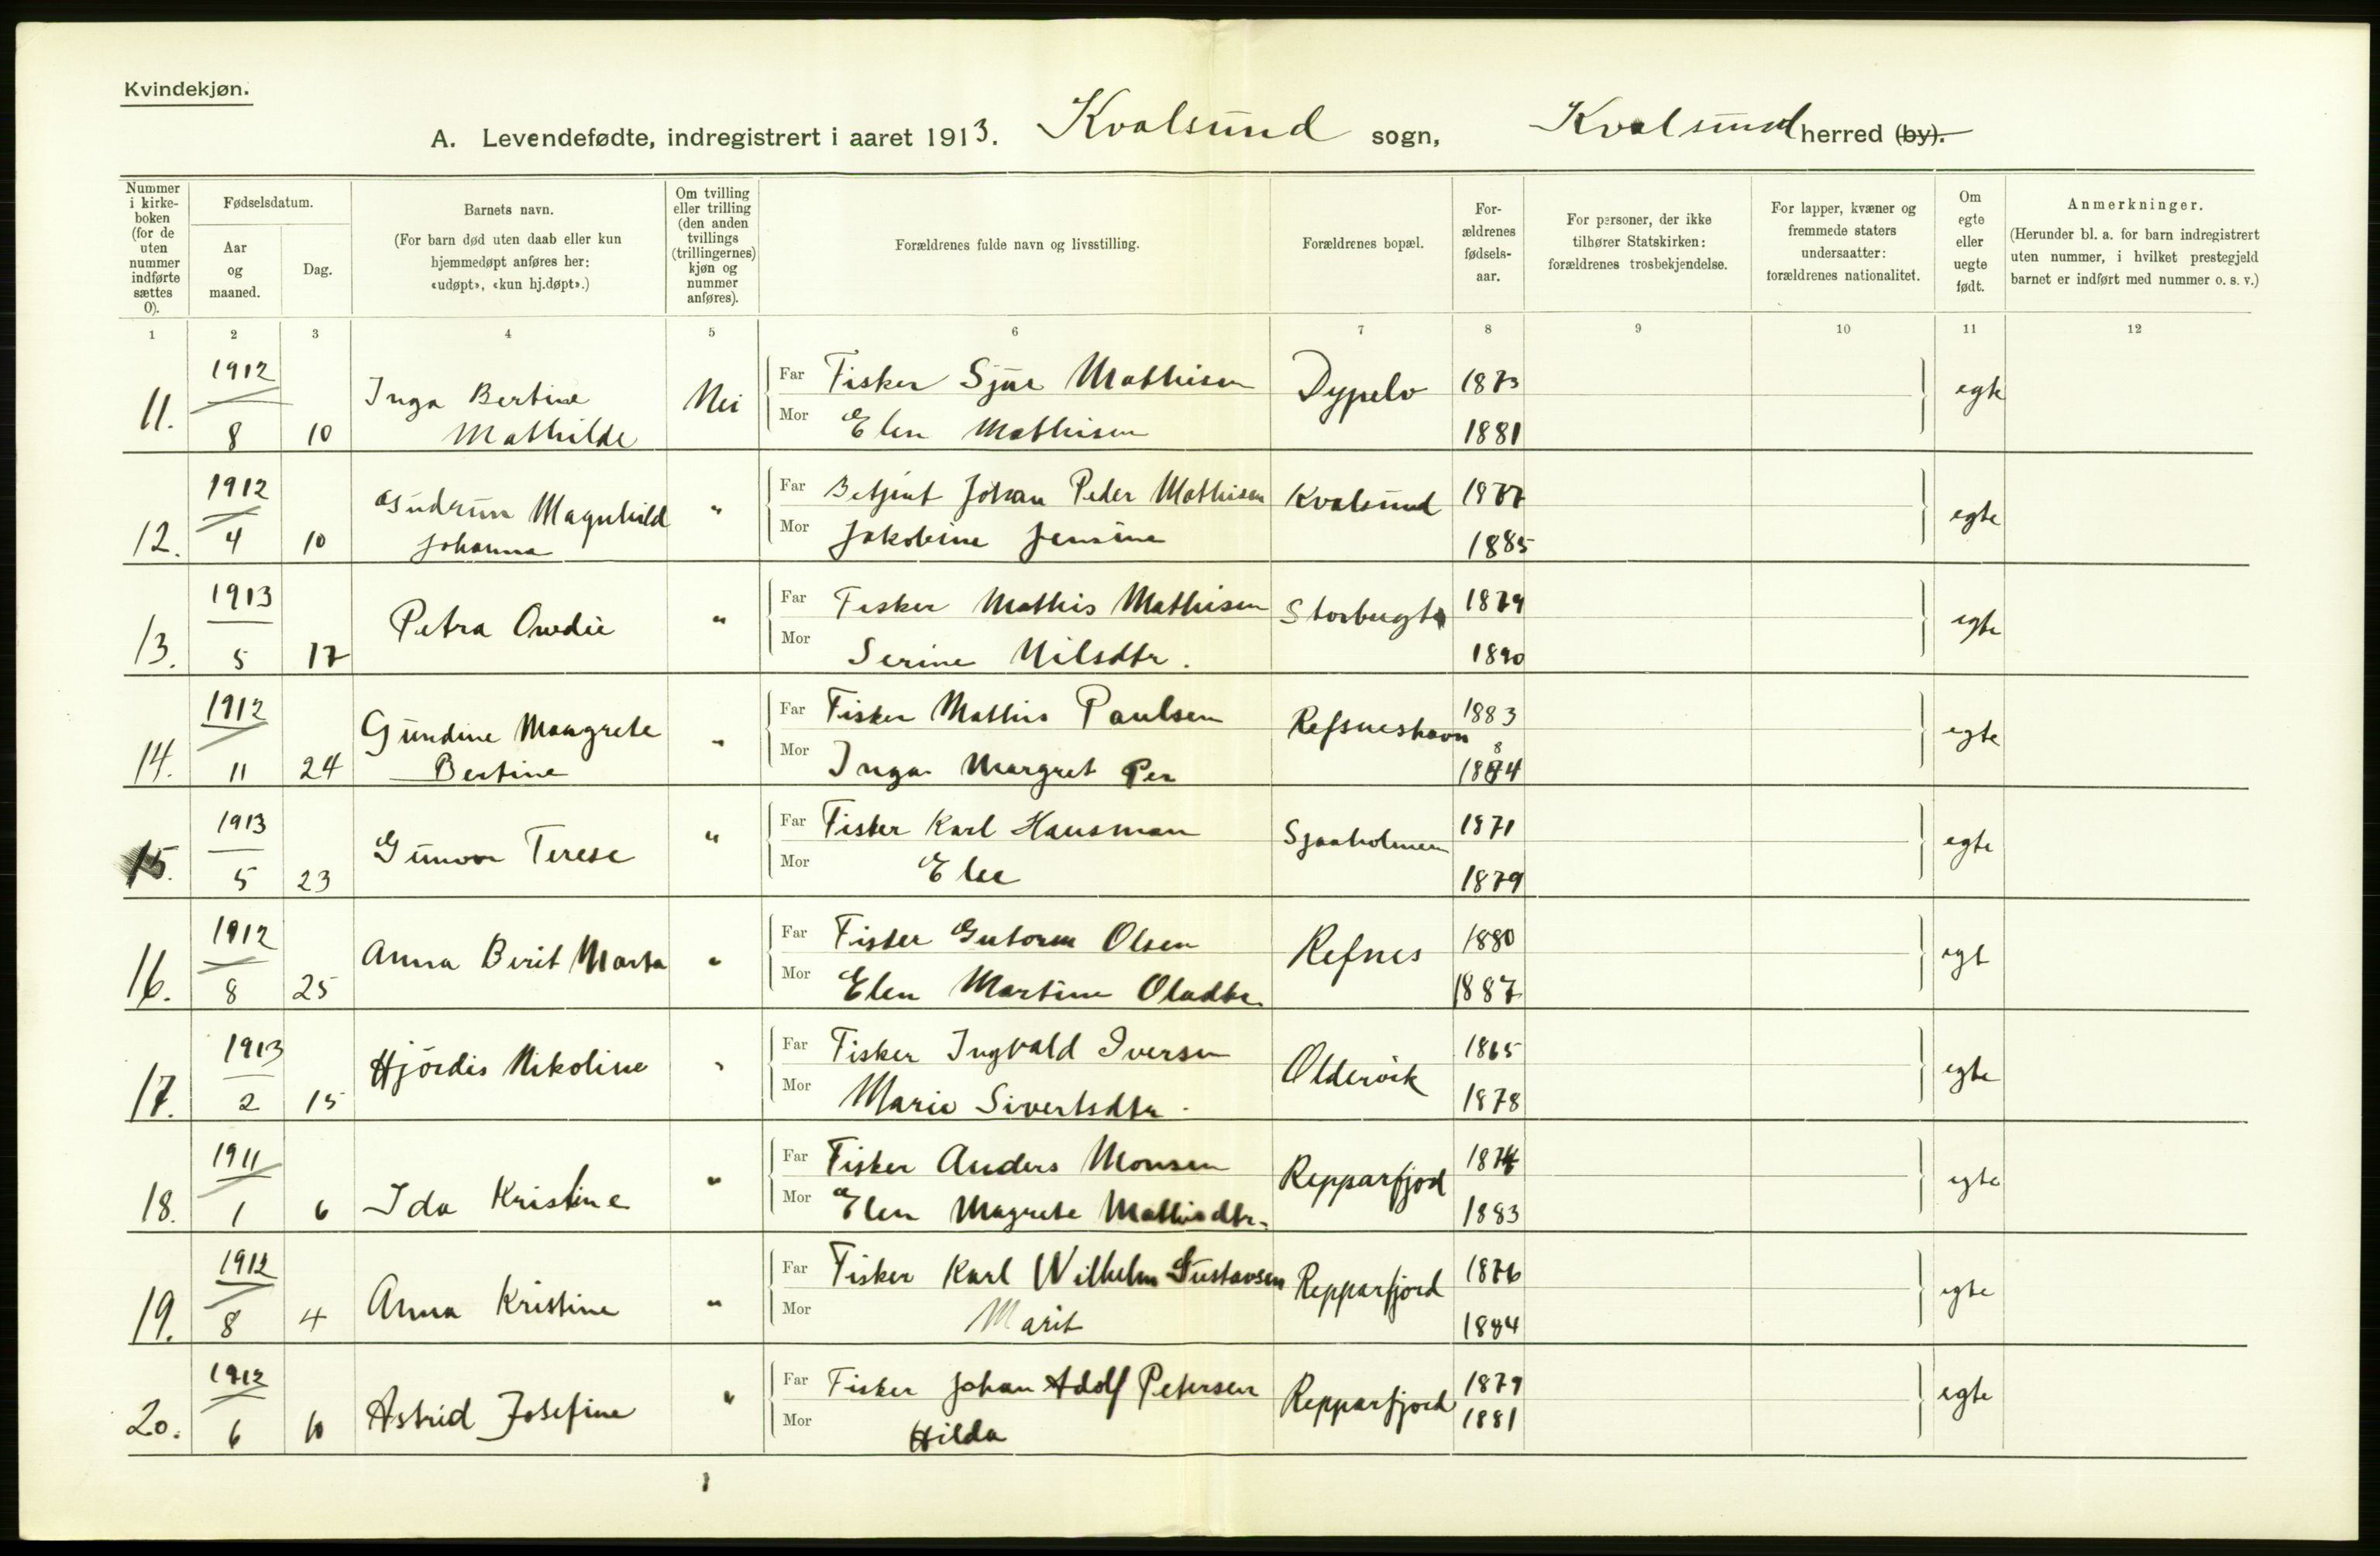 Kvindekjøn.
A. Levendefødte, indregistrert i aaret 1913. Kvalsund sogn, Kvalsund herred (by).
Nummer i kirke-boken (for de uten nummer indførte sættes 0).
Fødselsdatum.
Aar og maaned.
Dag.
Barnets navn.
(For barn død uten daab eller kun hjemmedøpt anføres her: «udøpt», «kun hj.døpt».)
Om tvilling eller trilling (den anden tvillings (trillingernes) kjøn og nummer anføres).
Forældrenes fulde navn og livsstilling.
Forældrenes bopæl.
For-ældrenes fødsels-aar.
For personer, der ikke tilhører Statskirken: forældrenes trosbekjendelse.
For lapper, kvæner og fremmede staters undersaatter: forældrenes nationalitet.
Om egte eller uegte født.
Anmerkninger.
(Herunder bl. a. for barn indregistrert uten nummer, i hvilket prestegjeld barnet er indført med nummer o. s. v.)
1 2 3 4 5 6 7 8 9 10 11 12
11. 1912 8 10 Inga Bertine Mathilde Nei Far Fisker Sjur Mathisen Dypelv 1873 egte
Mor Elen Mathisen 1881
12. 1912 4 10 Gudrun Magnhild Johanna " Far Betjent Johan Peder Mathisen Kvalsund 1877 egte
Mor Jakobine Jensine 1885
13. 1913 5 17 Petra " Far Fisker Mathis Mathisen Storbugt 1879 egte
Mor Serine Nilsdtr. 1890
14. 1912 11 24 Gundine Maagrete Bertine " Far Fisker Mathis Paulsen Refsneshavn 1883 egte
Mor Inga Margret Per 1884
15. 1913 5 23 Gunvor Terese " Far Fisker Karl Hausman Sjaaholmen 1871 egte
Mor Elee 1879
16. 1912 8 25 Anna Berit Marta " Far Fisker Gutorm Olsen Refnes 1880 egt
Mor Elen Martine Oladtr. 1887
17. 1913 2 15 Hjördis Nikoline " Far Fisker Ingvald Iversen Oldervik 1865 egte
Mor Marie Sivertsdtr. 1878
18. 1911 1 6 Ida Kristine " Far Fisker Anders Monsen Repparfjod 1874 egte
Mor Elen Magrete Mathisdtr. 1883
19. 1912 8 4 Anna Kristine " Far Fisker Karl Wilhelm Gustavsen Repparfjord 1876 egte
Mor Marit 1884
20. 1912 6 10 Astrid Josefine " Far Fisker Johan Adolf Petersen Repparfjord 1879 egte
Mor Hilda 1881